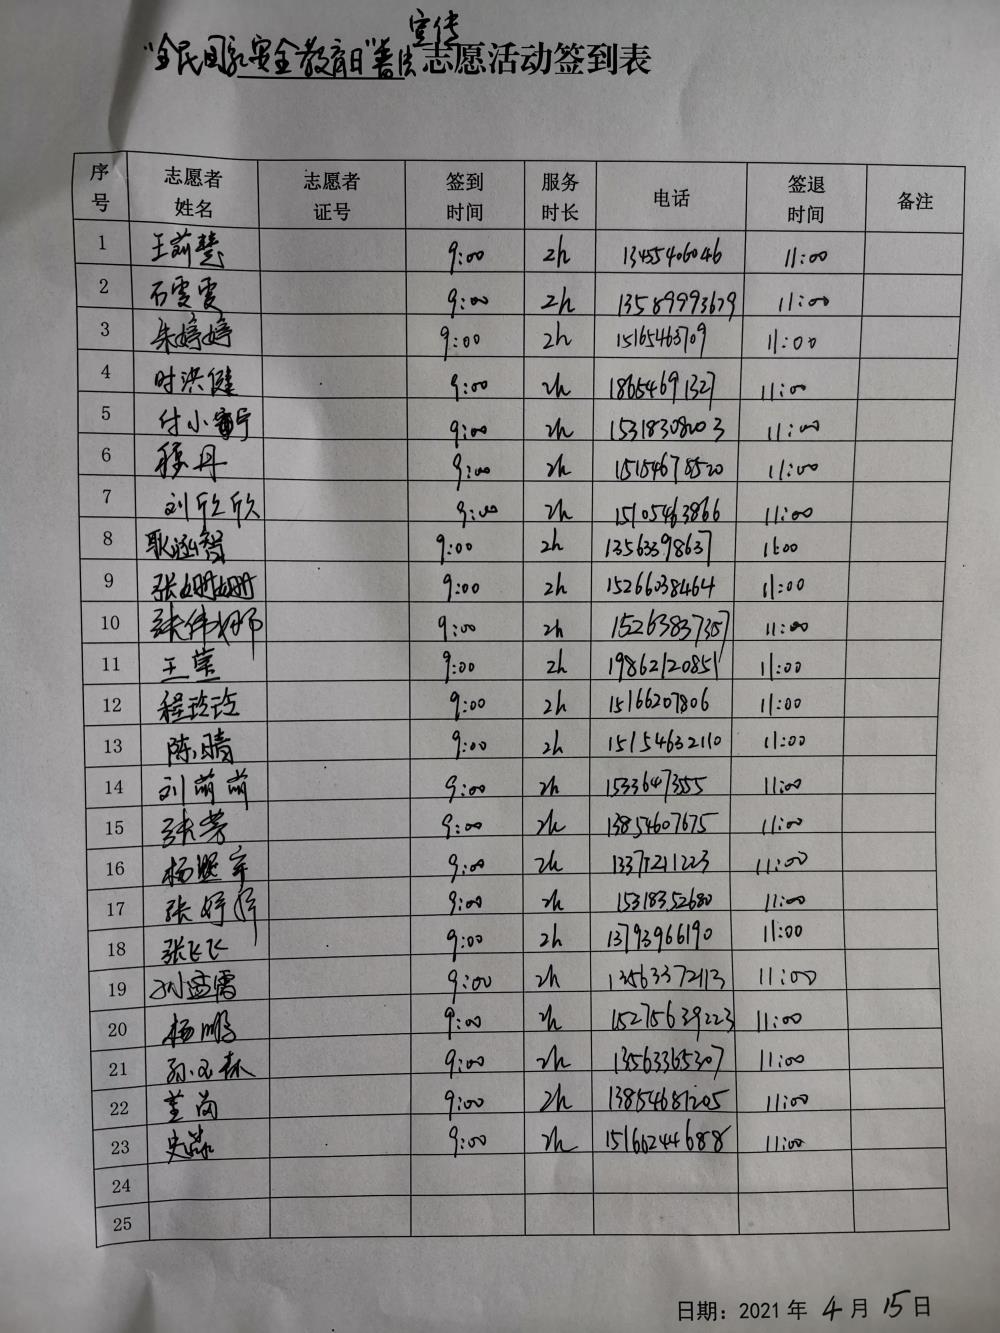 宣传
“全民国家安全教育日”普法志愿活动签到表
序号 志愿者姓名 志愿者证号 签到时间 服务时长 电话 签退时间 备注
1 王前慧 9:00 2h 13455406046 11:00
2 石雯雯 9:00 2h 13589993679 11:00
3 朱婷婷 9:00 2h 15165463709 11:00
4 时洪健 9:00 2h 18654691327 11:00
5 付小宁 9:00 2h 15318308203 11:00
6 程丹 9:00 2h 15154678520 11:00
7 刘欣欣 9:00 2h 15105463866 11:00
8 耿涵智 9:00 2h 13563398637 11:00
9 张姗姗 9:00 2h 15266038464 11:00
10 张伟娜 9:00 2h 15263837357 11:00
11 王莹 9:00 2h 19862120851 11:00
12 程玲玲 9:00 2h 15166207806 11:00
13 陈晴 9:00 2h 15154632110 11:00
14 刘萌萌 9:00 2h 15336473555 11:00
15 张芳 9:00 2h 13854607675 11:00
16 杨 9:00 2h 13371211223 11:00
17 张婷婷 9:00 2h 15318352680 11:00
18 张飞飞 9:00 2h 13793966190 11:00
19 孙孟霞 9:00 2h 13563372113 11:00
20 杨鹏 9:00 2h 15275639223 11:00
21 孙文森 9:00 2h 13563365307 11:00
22 董岗 9:00 2h 13854681205 11:00
23 史蕊 9:00 2h 15166244688 11:00
24
25
日期：2021年4月15日